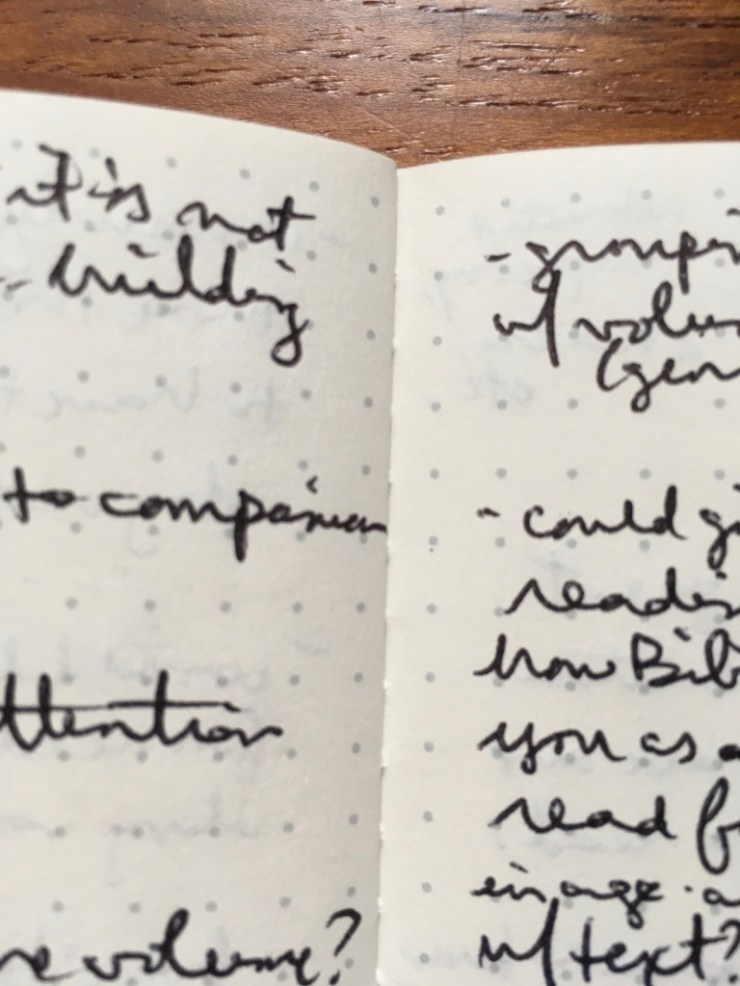 it is not
- building
to companion
attention
volume?
- groupin
w/ volum
(gen
- could gi
readin
how Bib
you as a
read f
image · a
w/ text?